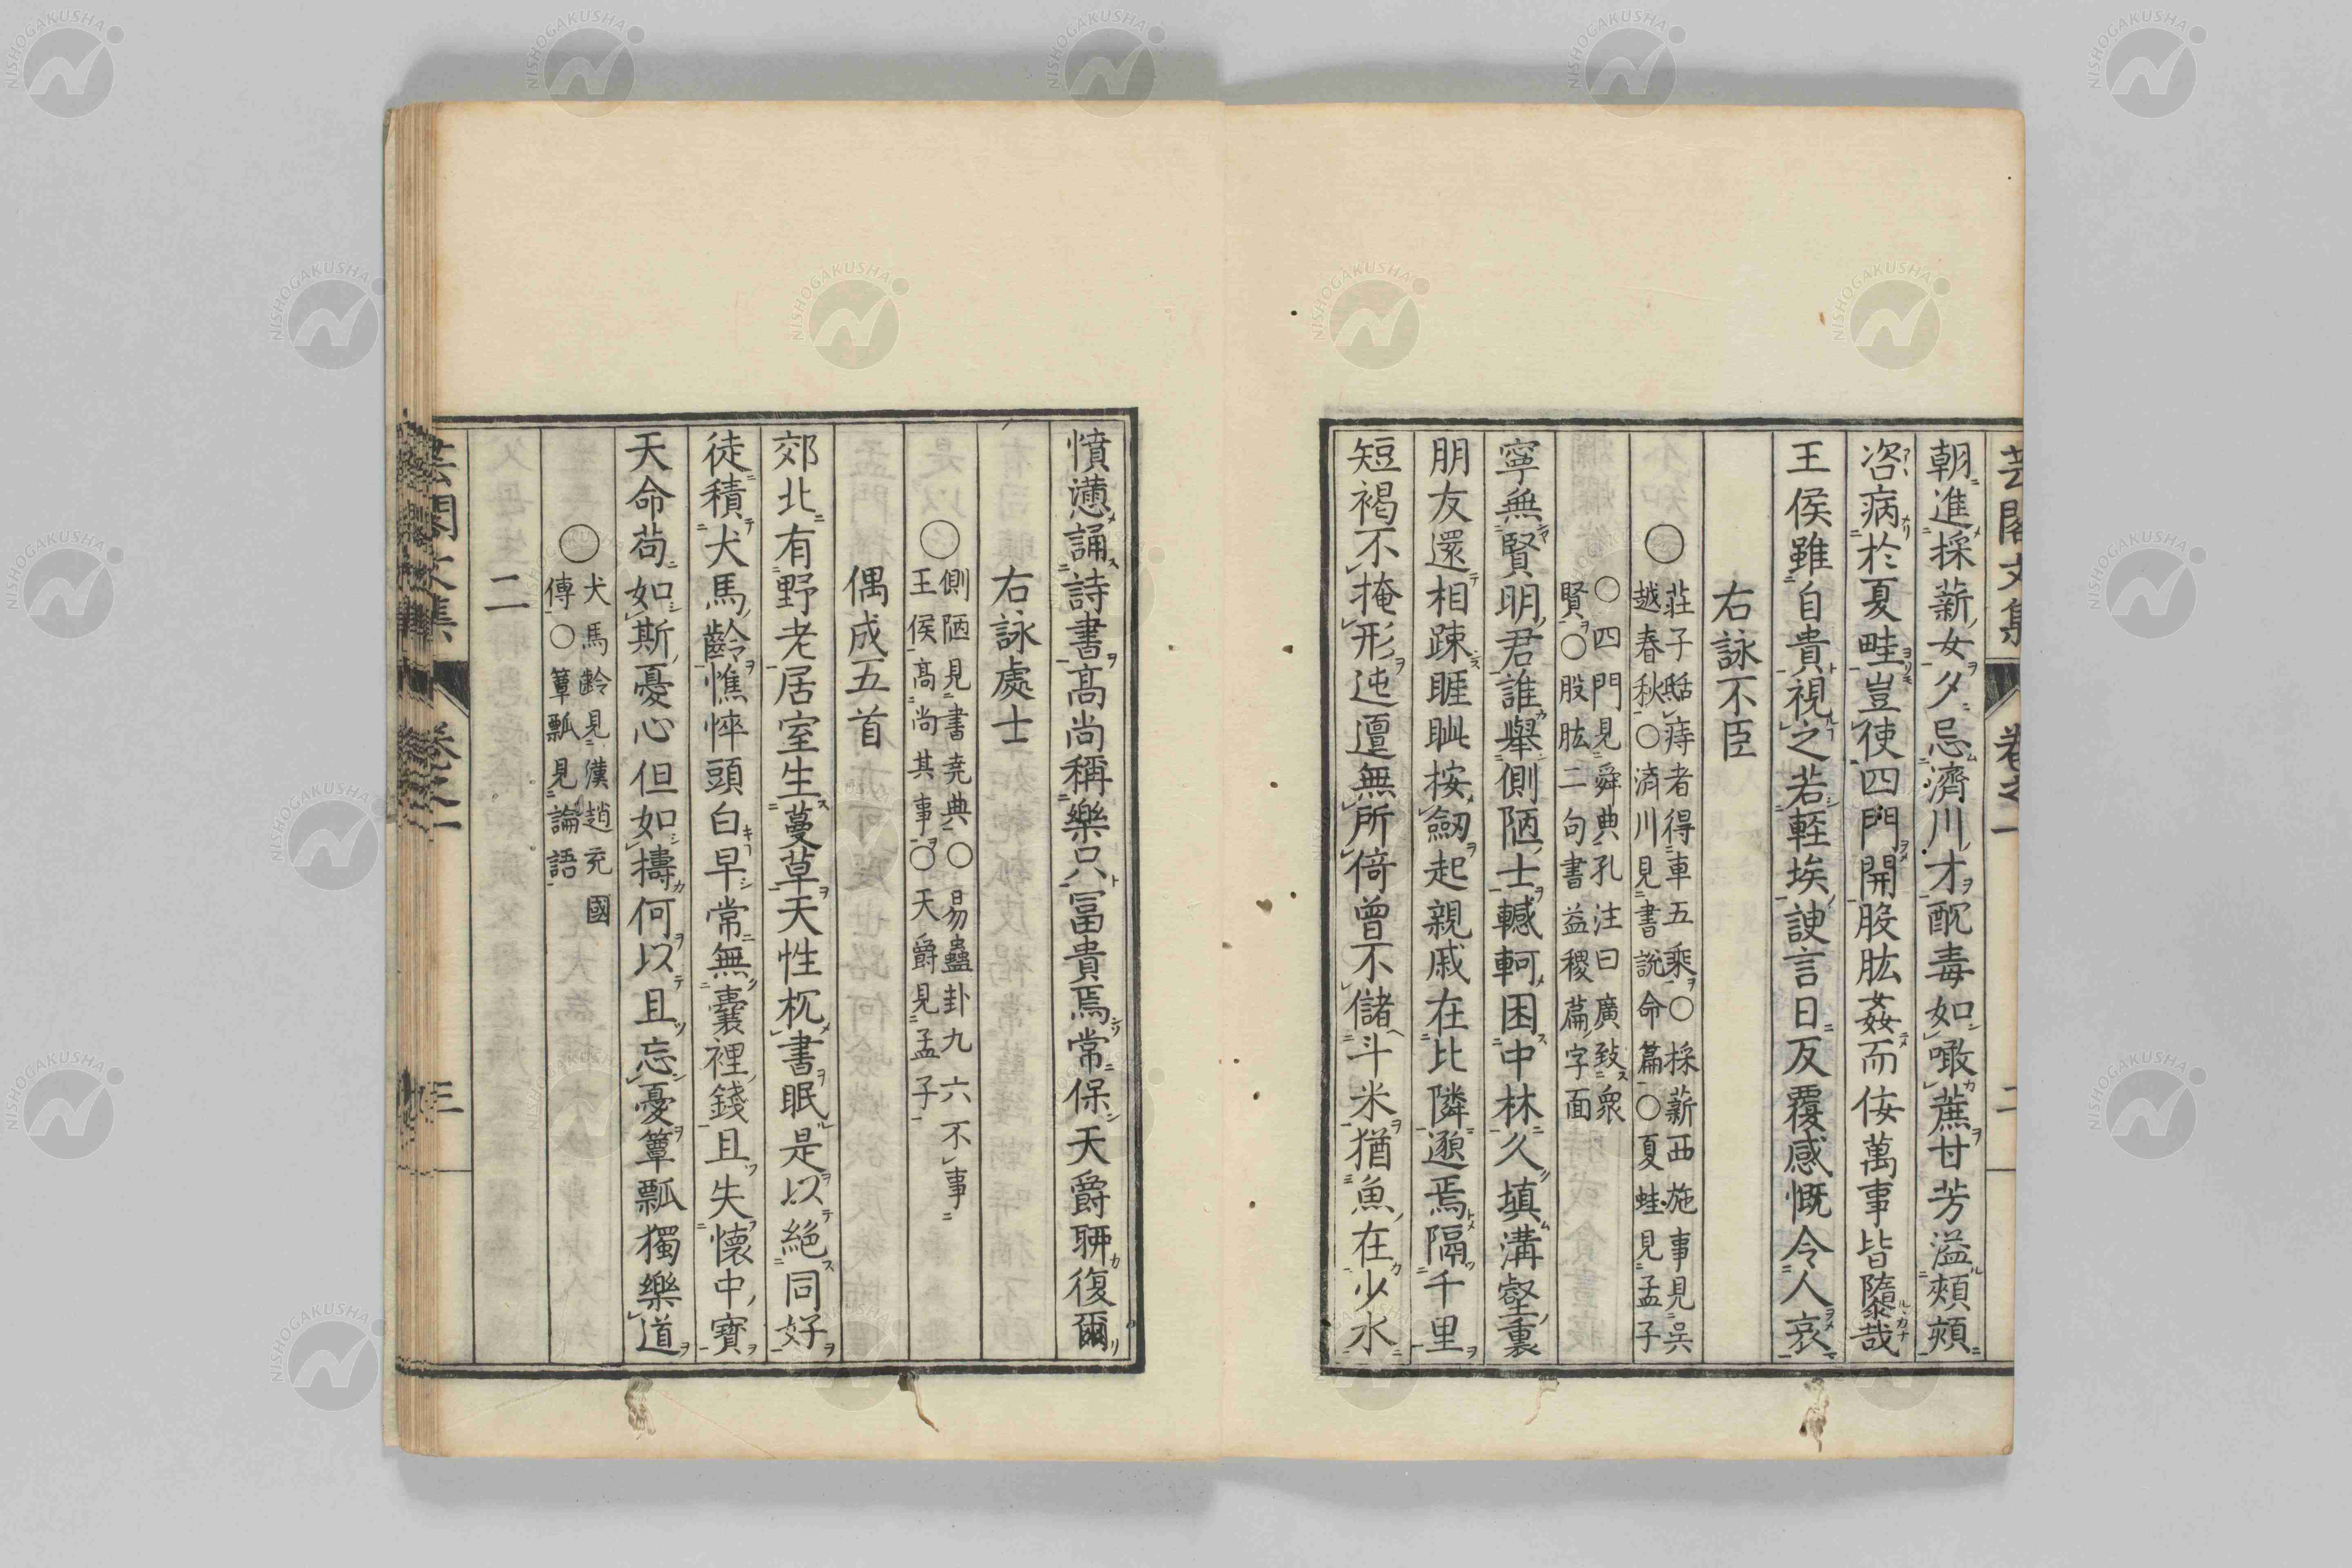 朝進採薪女夕忌濟川才酖毒如噉蔗甘芳溢頰頰
咨病於夏畦豈使四門開股肱姦而佞萬事皆隳哉
王侯雖自貴視之若輊埃諛言日反覆感慨令人哀
右詠不臣
〇莊子䑛痔者得車五乘〇採薪西施事見吳
越春秋〇済川見書說命篇〇夏蛙見孟子
〇四門見舜典孔注曰廣致衆
賢〇股肱二句書益稷篇字面
寧無賢明君誰舉側陋士轗軻困中林久填溝壑裏
朋友還相踈睚眦按劔起親戚在比隣遯焉隔千里
短褐不掩形迍邅無所倚曾不儲斗米猶魚在少水
憤懑誦詩書高尚稱樂只冨貴焉常保天爵聊復爾
右詠處士
〇側陋見書堯典〇易蠱卦九六不事
王侯高尚其事〇天爵見孟子
偶成五首
郊北有野老居室生蔓草天性枕書眠是以絶同好
徒積犬馬齡憔悴頭白早常無囊裡錢且失懐中寶
天命茍如斯憂心但如擣何以且忘憂簞瓢獨樂道
〇犬馬齡見漢趙充國
傳〇簞瓢見論語
二
芸閣文集
卷之一
三
NISHOGAKUSHA